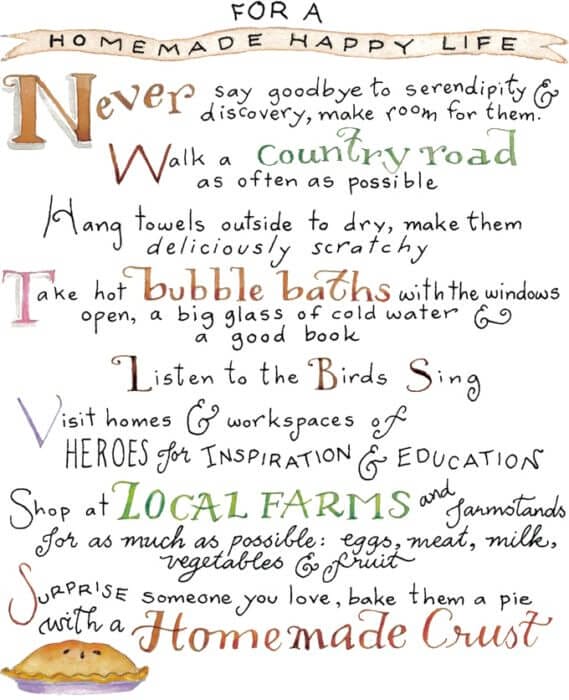 FOR A
HOMEMADE HAPPY LIFE
Never say goodbye to serendipity &
discovery, make room for them.
Walk a Country road
as often as possible
Hang towels outside to dry, make them
deliciously scratchy
Take hot bubble baths with the windows
open, a big glass of cold water &
a good book
Listen to the Birds Sing
Visit homes & workspaces of
HEROES for INSPIRATION & EDUCATION
Shop at LOCAL FARMS and farmstands
for as much as possible: eggs, meat, milk,
vegetables & fruit
SURPRISE someone you love, bake them a pie
with a Homemade Crust